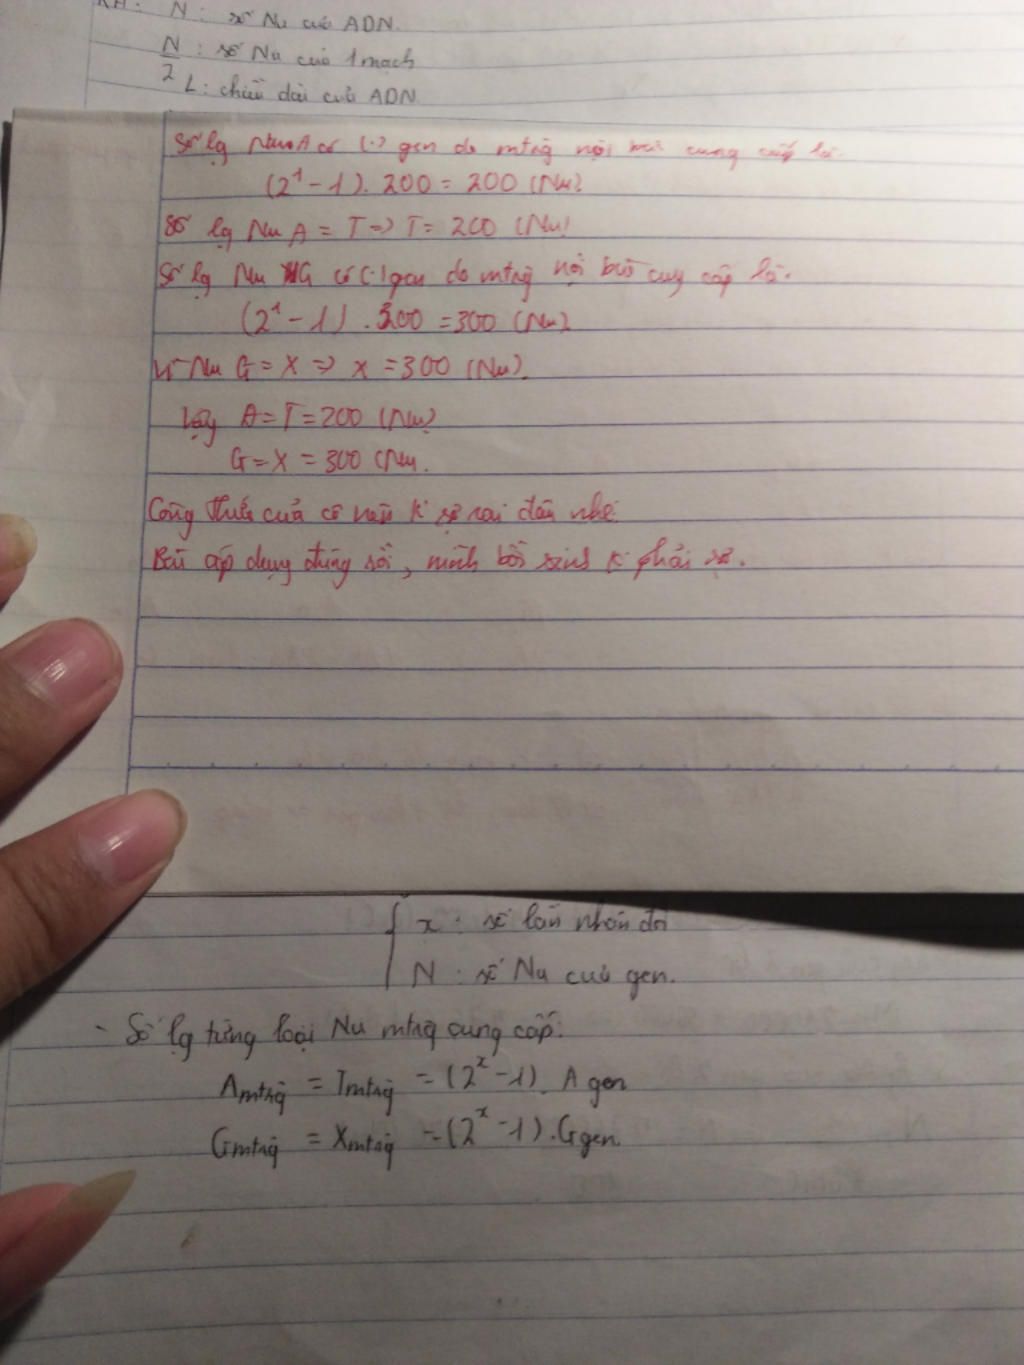 KH: N: số Nu của ADN.
N/2: số Nu của 1 mạch
L: chiều dài của ADN
Số lg Nu A có (.) gen do mtrg nội bào cung cấp là.
(2¹ - 1). 200 = 200 (Nu)
Số lg Nu A = T => T = 200 (Nu)
Số lg Nu G có (.) gen do mtrg nội bào cug cấp là.
(2¹ - 1). 300 = 300 (Nu)
Vì Nu G = X => X = 300 (Nu).
Vậy A = T = 200 (Nu)
G = X = 300 (Nu.
Công thức của cô nên k sợ sai đâu nhé.
Bạn áp dụng đúng rồi, mình bồi sinh k phải sợ.
x: số lần nhân đôi
N: số Nu của gen.
- Số lg từng loại Nu mtrg cung cấp:
Amtrg = Tmtrg = (2ˣ - 1). A gen
Gmtrg = Xmtrg = (2ˣ - 1). G gen.